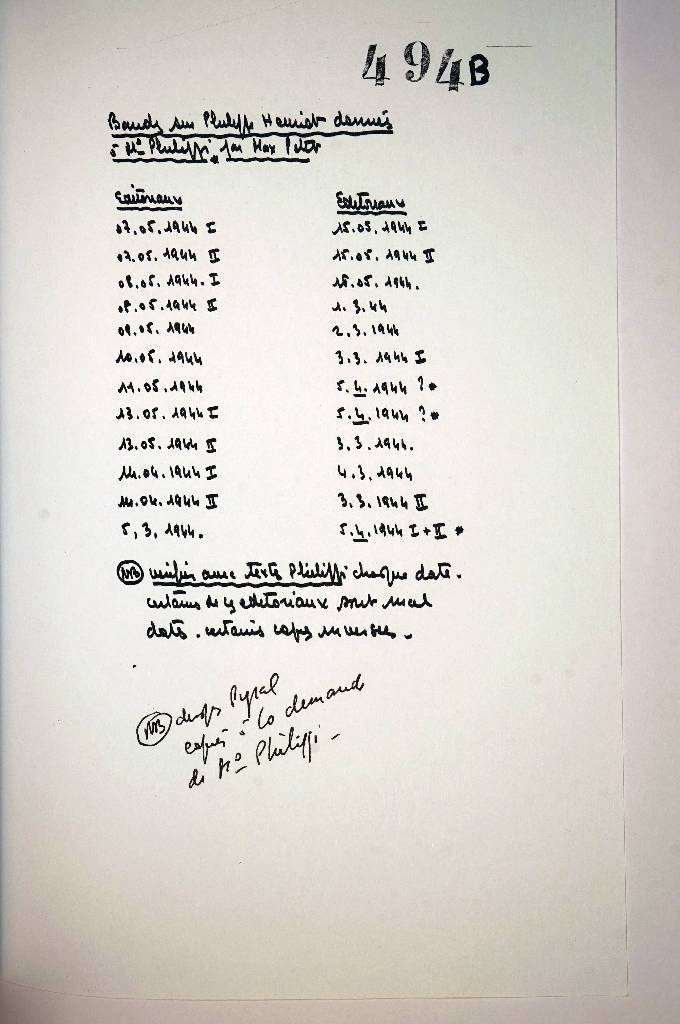 494B
Bande sur Philippe Henriot donnés
à Me Philippi par Max Petit
Editoriaux
07.05.1944 I
07.05.1944 II
08.05.1944. I
08.05.1944 II
09.05.1944
10.05.1944
11.05.1944
13.05.1944 I
13.05.1944 II
14.04.1944 I
14.04.1944 II
5.3.1944.
Editoriaux
15.05.1944 I
15.05.1944 II
15.05.1944.
1.3.44
2.3.1944
3.3.1944 I
5.4.1944 ?*
5.4.1944 ?*
3.3.1944.
4.3.1944
3.3.1944 II
5.4.1944 I+II *
NB vérifier avec texte Philippi chaque date.
certains de ces editoriaux sont mal
datés. certains copies inversées.
NB disques Pyral
copiés à la demande
de Me Philippi -